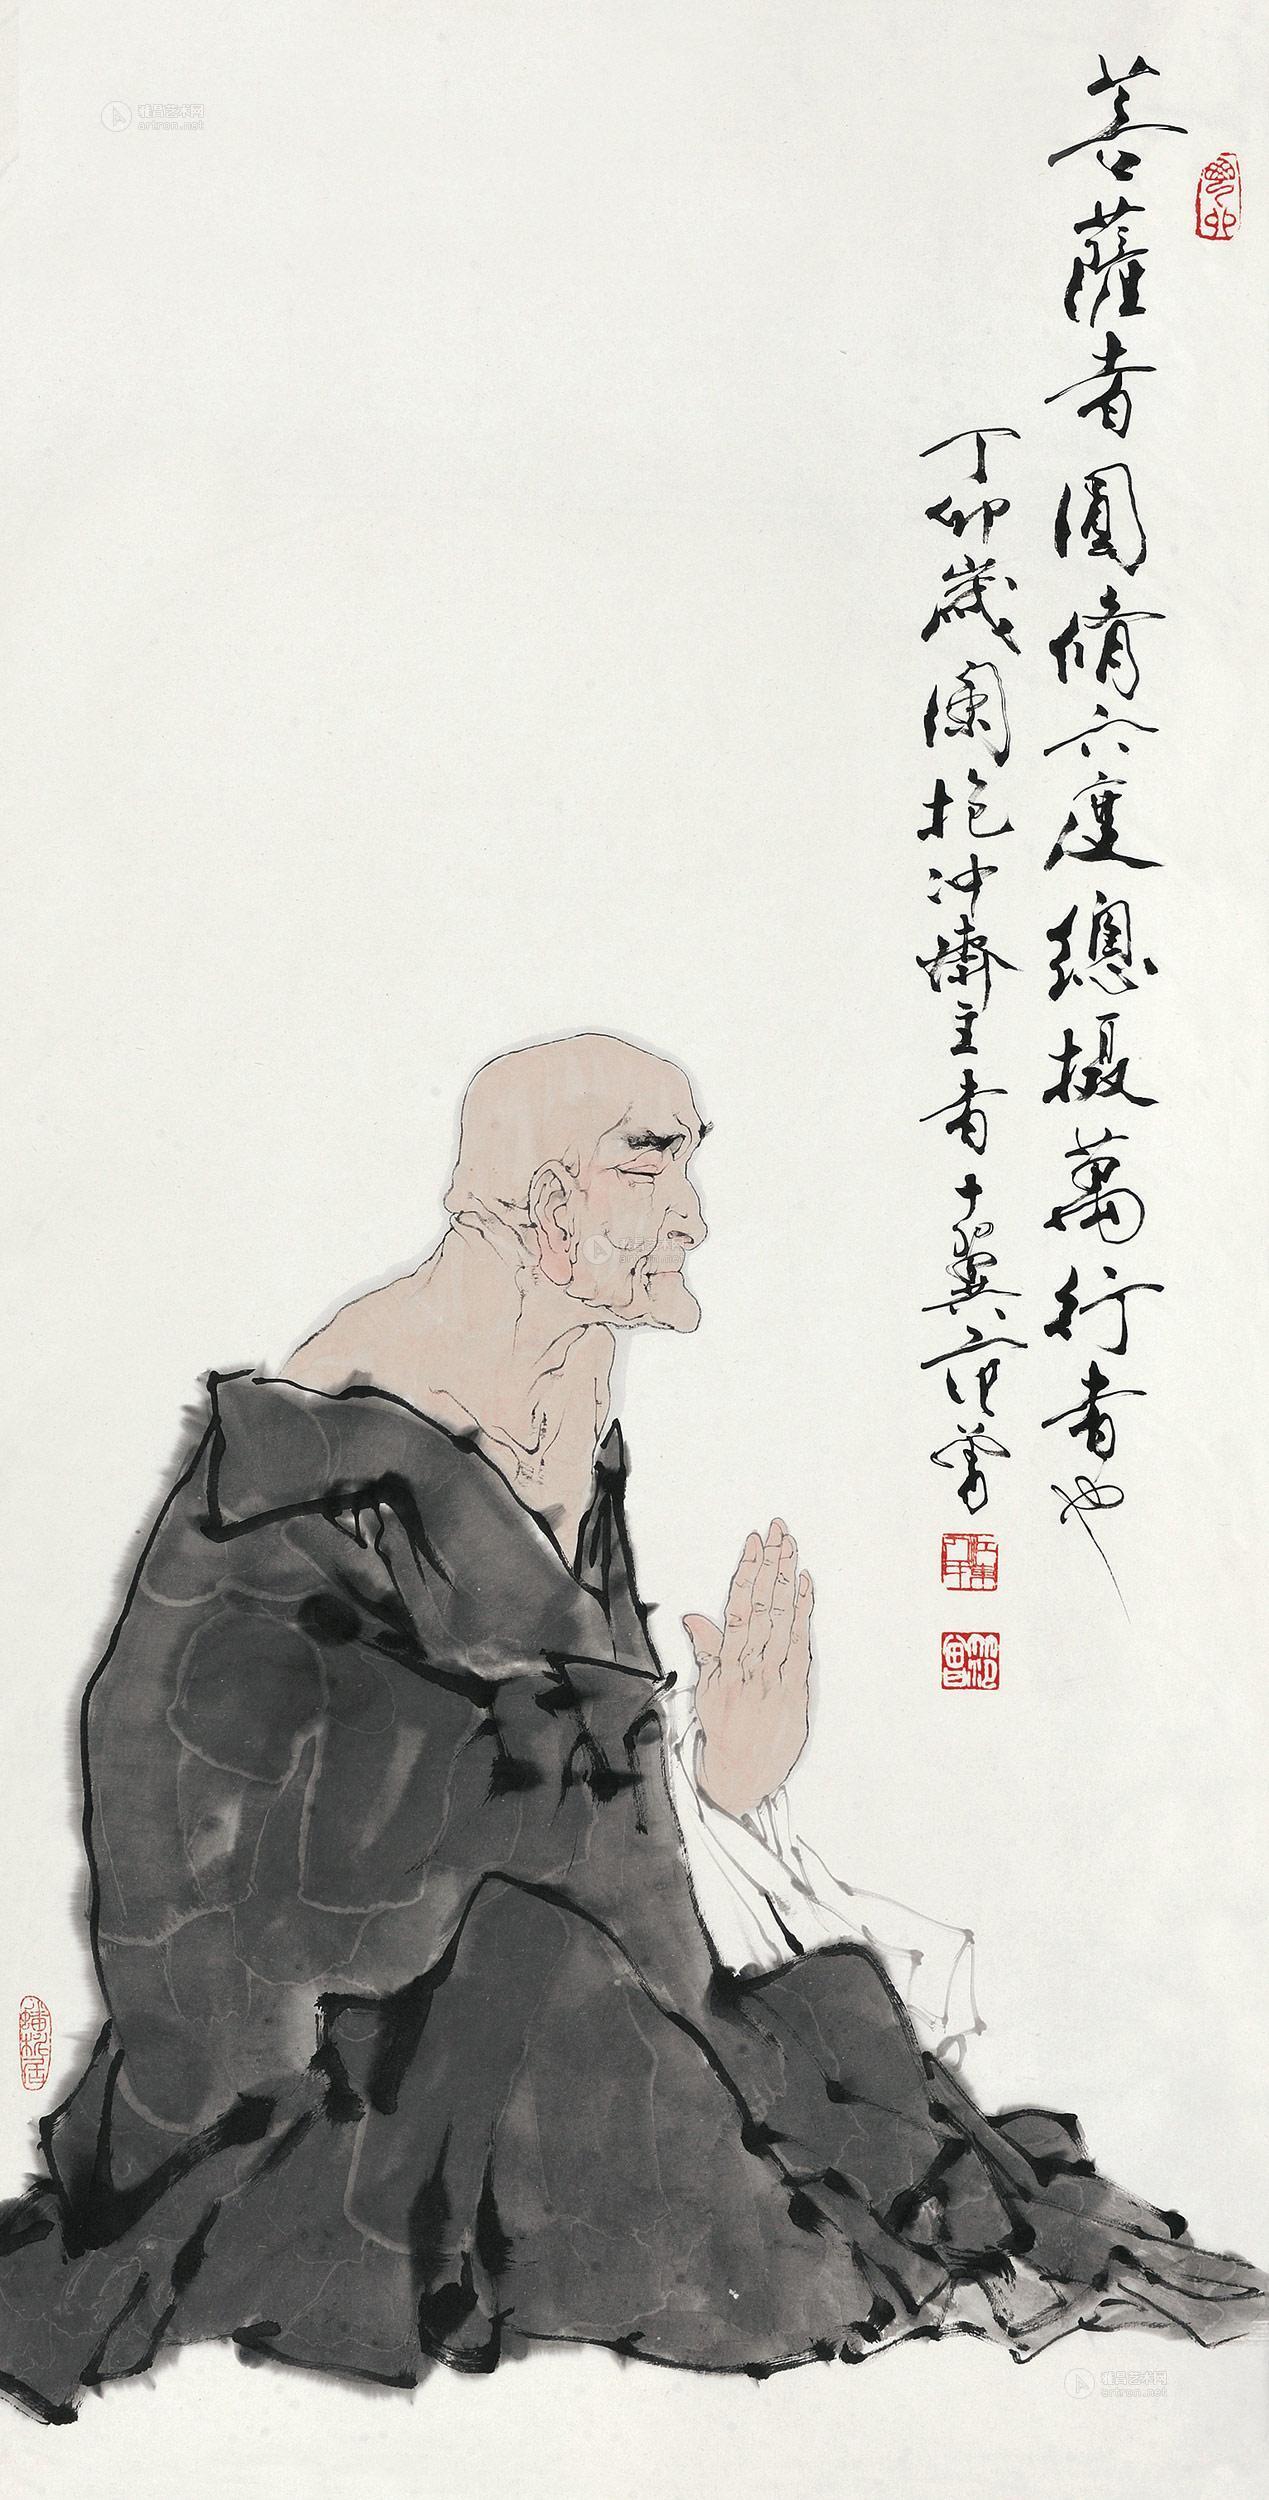 菩薩者圓脩六度總攝萬行者也
丁卯歲闌抱冲齋主者十翼范曾
雅昌艺术网
artron.net
雅昌艺术网
artron.net